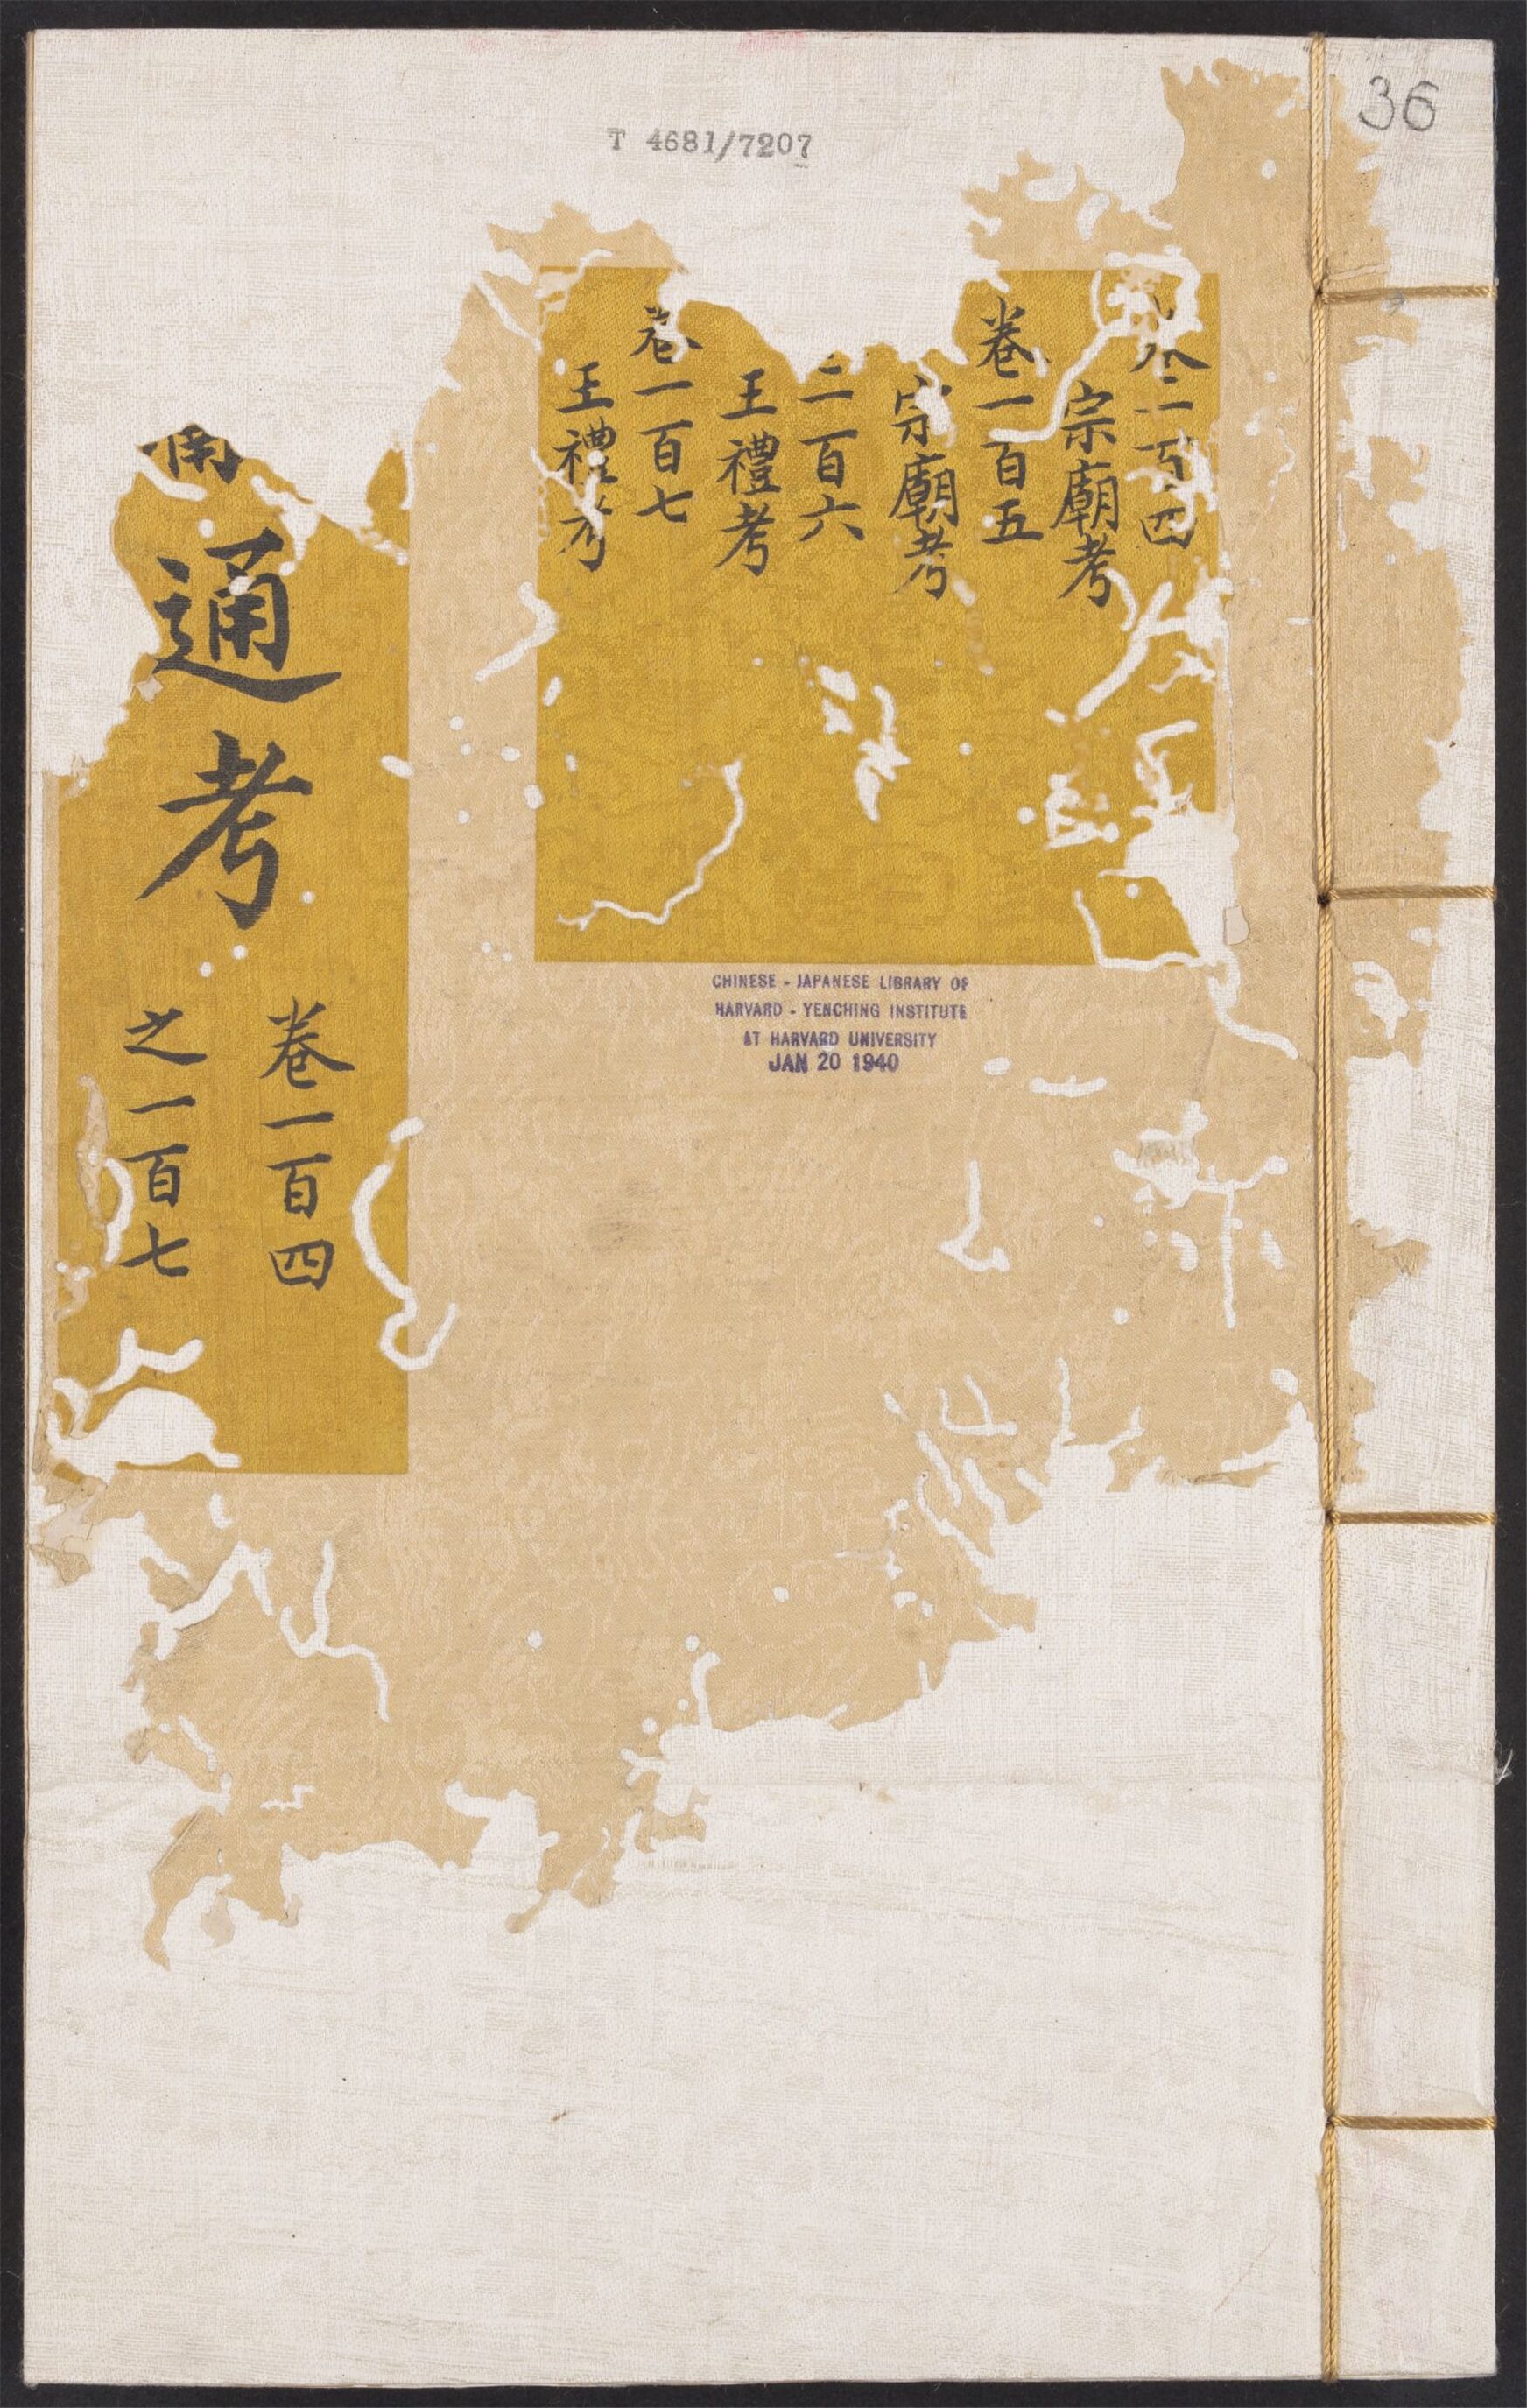 36
T 4681/7207
一百四
宗廟考
卷一百五
宗廟考
一百六
王禮考
卷一百七
王禮考
通考
卷一百四
之一百七
CHINESE - JAPANESE LIBRARY OF
HARVARD - YENCHING INSTITUTE
AT HARVARD UNIVERSITY
JAN 20 1940